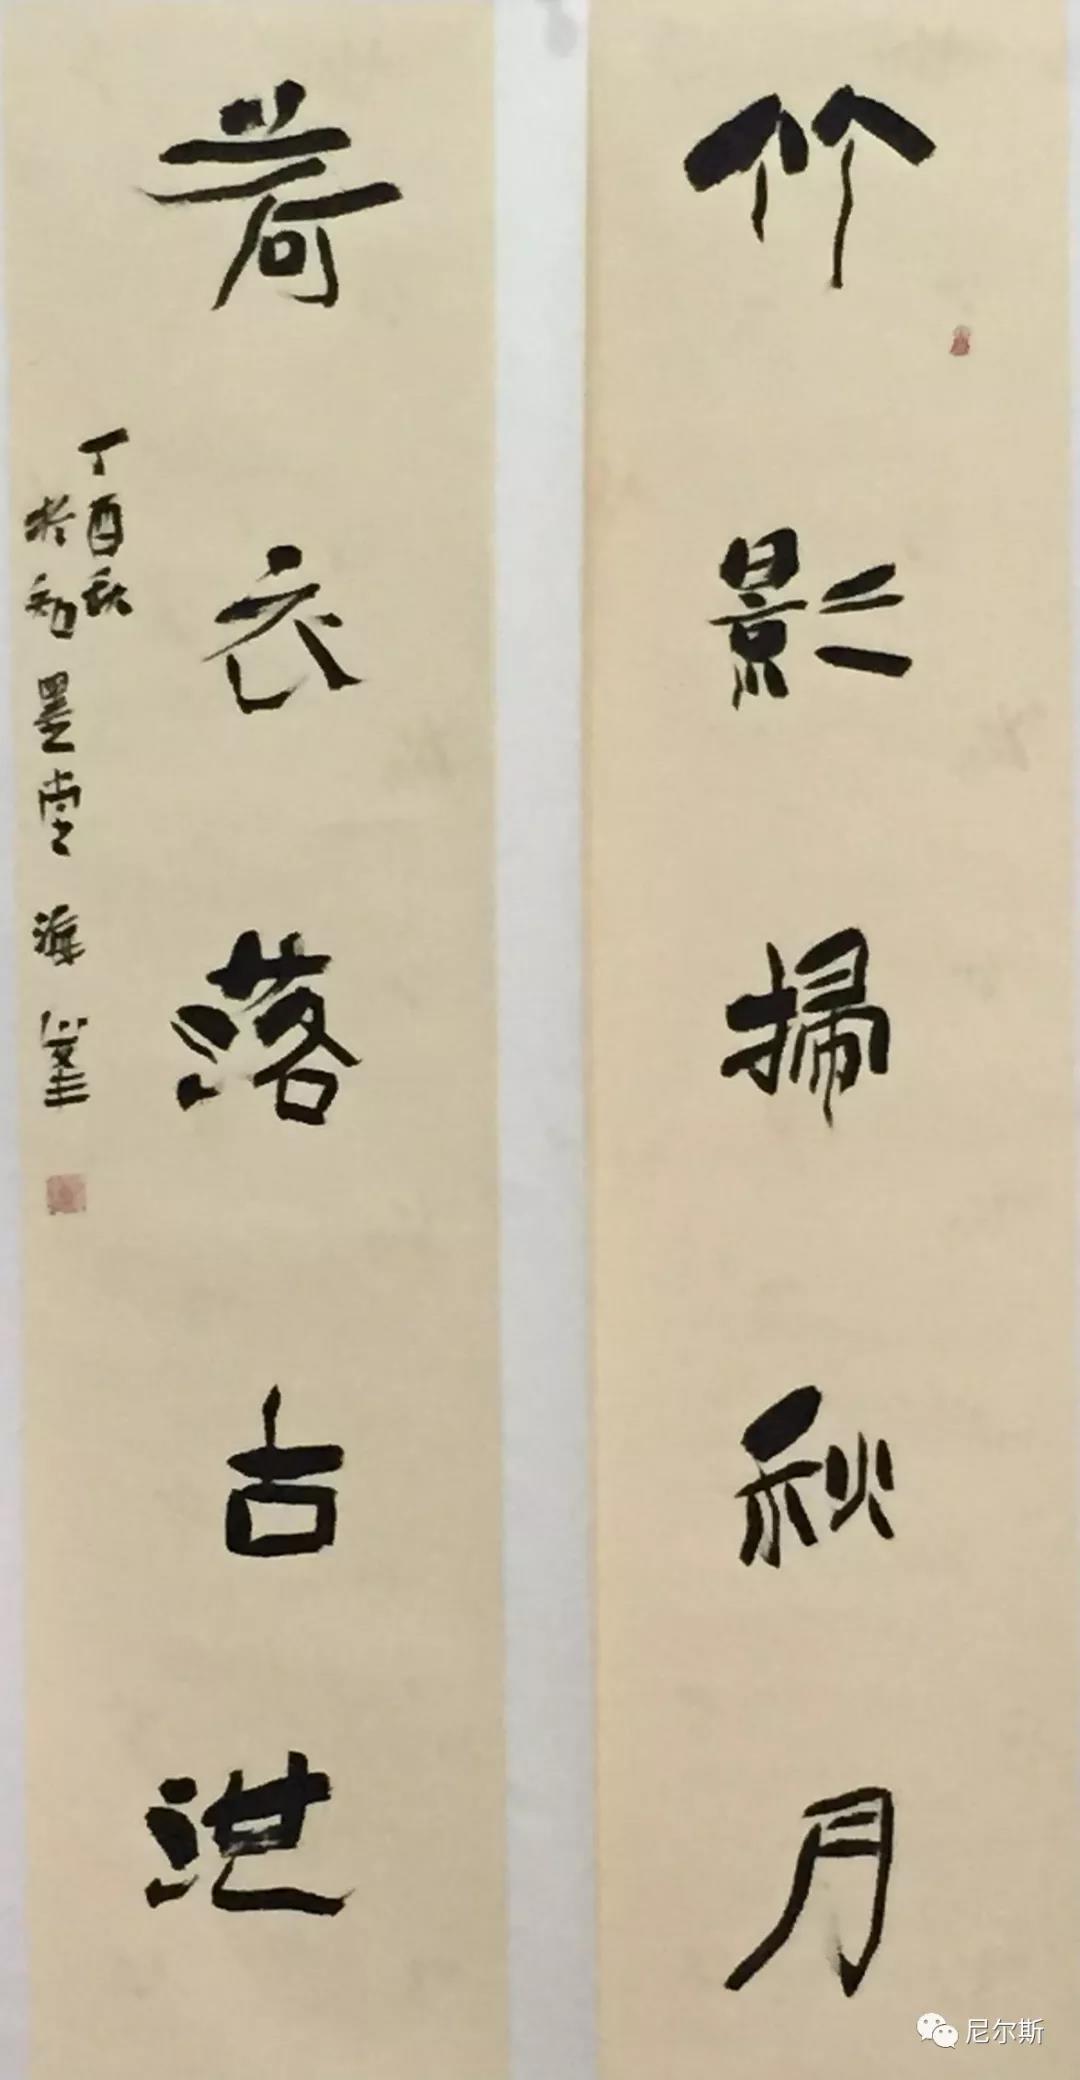 竹影掃秋月
荷衣落古池
丁酉秋
於知墨堂 海峰
尼尔斯